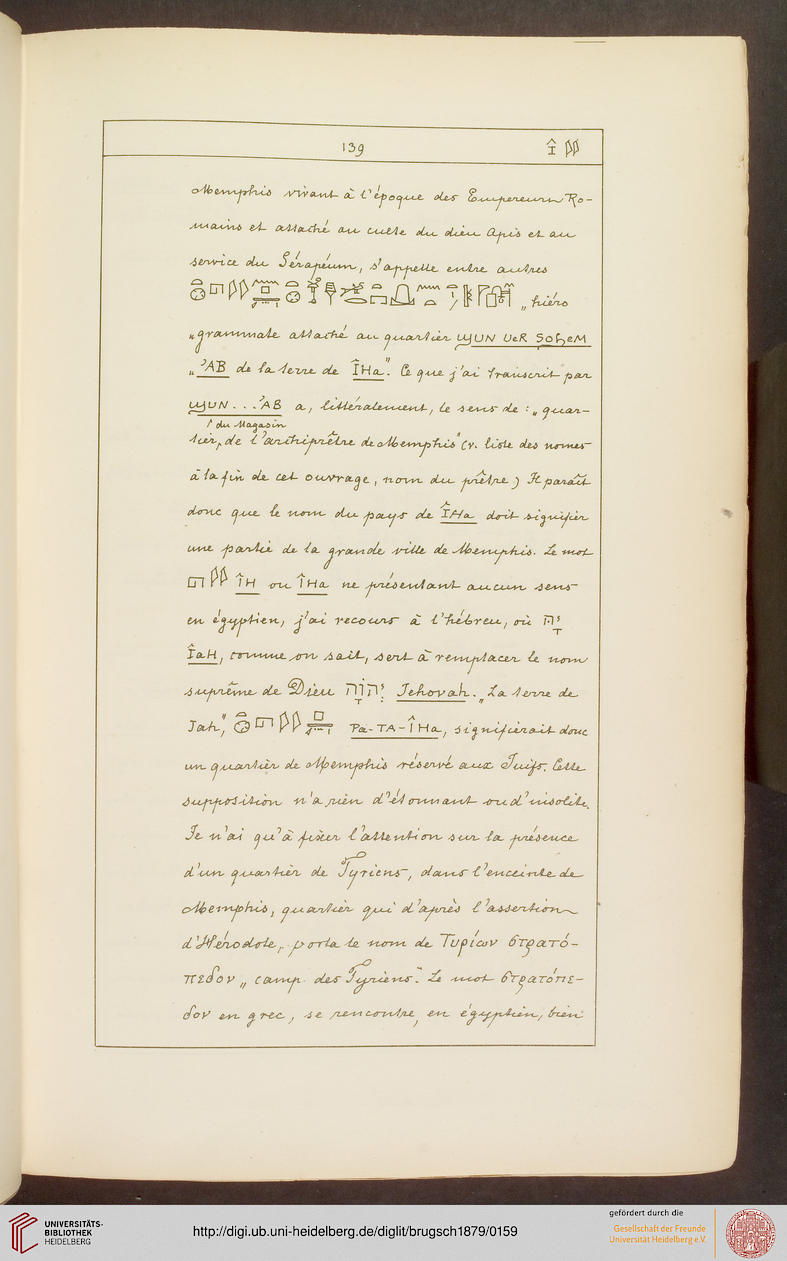 139 Î 𓇌
Memphis vivant à l'époque des Empereurs Ro-
mains et attaché au culte du dieu Apis et au
service du Sérapéum, s'appelle entre autres
„hiéro
„grammate attaché au quartier ϣUN UeR SOϧeM
„'AB de la terre de ÎHa". Ce que j'ai transcrit par
ϣUN...'AB a, littéralement, le sens de : „quar-
du Magasin
tier, de l'archiprêtre de Memphis" (v. liste des nomes
à la fin de cet ouvrage, nom du prêtre) Il paraît
donc que le nom du pays de ÎHa doit signifier
une partie de la grande ville de Memphis. Le mot
𓉔𓇌 ÎH ou ÎHa ne présentant aucun sens
en égyptien, j'ai recours à l'hébreu, où יָהּ
ÎaH, comme on sait, sert à remplacer le nom
suprême de Dieu יְהוָֹה Jehovah. „La terre de
Jah", Pa-TA-ÎHa, signifierait donc
un quartier de Memphis réservé aux Juifs. Cette
supposition n'a rien d'étonnant ou d'insolite.
Je n'ai qu'à fixer l'attention sur la présence
d'un quartier de Tyriens, dans l'enceinte de
Memphis, quartier qui d'après l'assertion
d'Hérodote, porta le nom de Τυρίων στρατό-
πεδον „camp des Tyriens". Le mot στρατόπε-
δον en grec, se rencontre, en égyptien, bien
UNIVERSITÄTS-
BIBLIOTHEK
HEIDELBERG
http://digi.ub.uni-heidelberg.de/diglit/brugsch1879/0159
gefördert durch die
Gesellschaft der Freunde
Universität Heidelberg e.V.